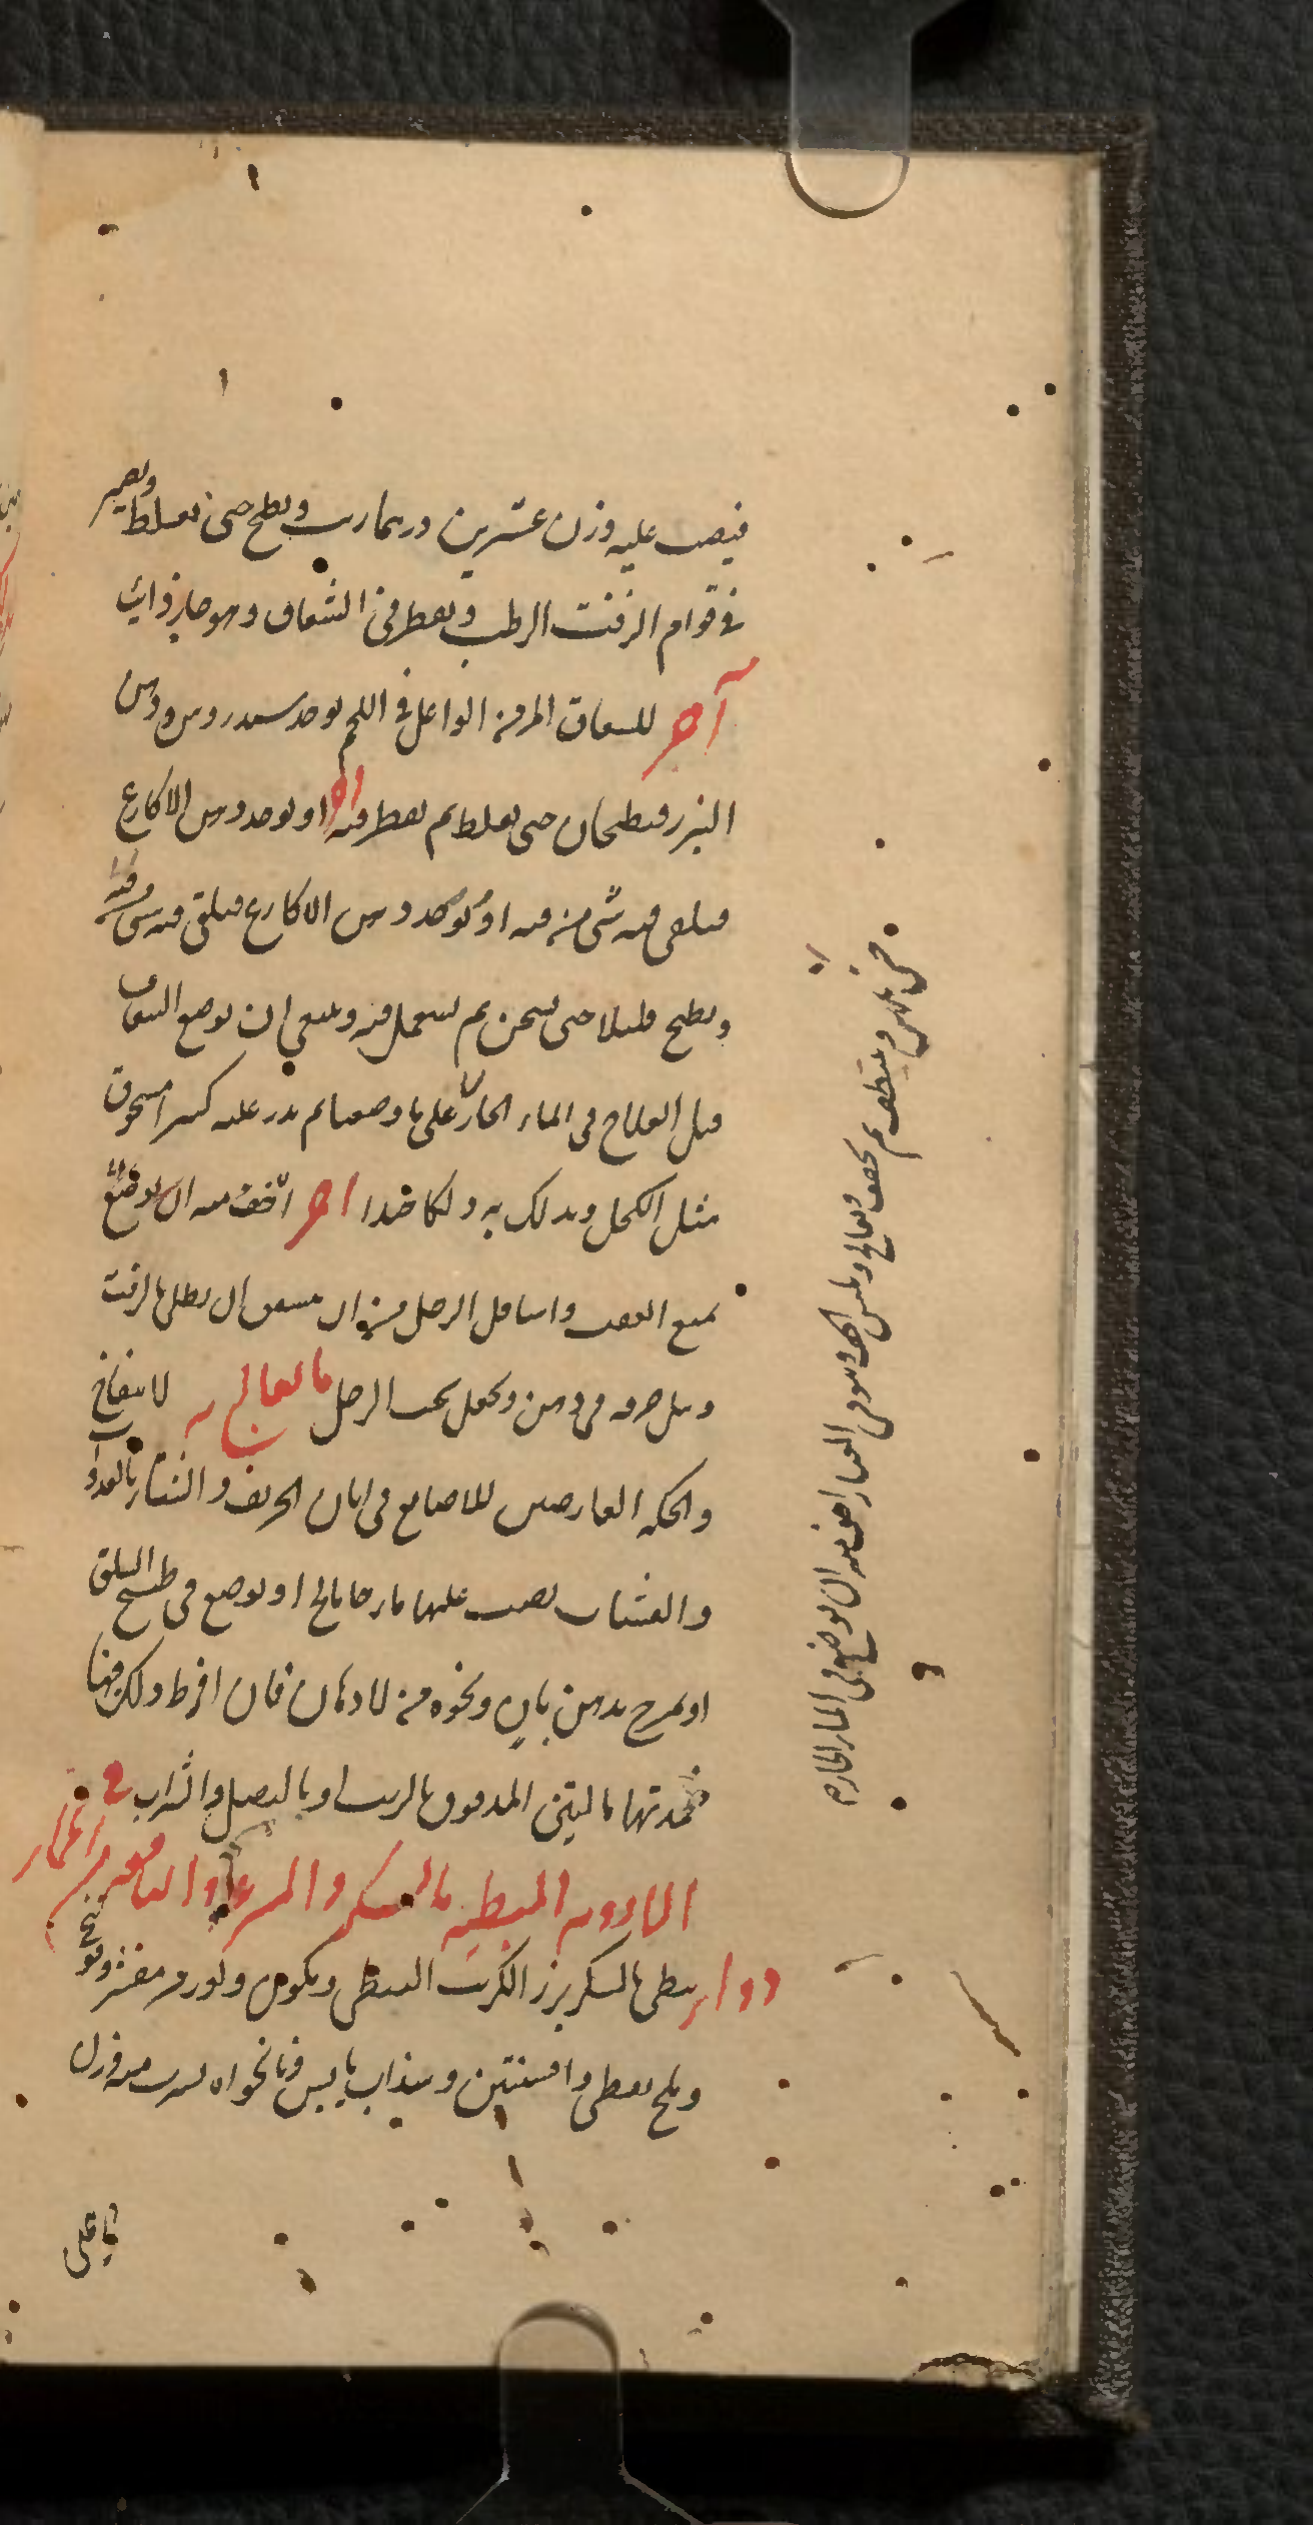 فيصب عليه وزن عشرين درهما زيت ويطبخ حتى يغلظ ويصير
في قوام الزفت الرطب ويقطر في الشقاق وهو حار ذائب
آخر للشقاق المزمنة الواغل في اللحم يوخذ سندروس ودهن
البزر فيطبخان حتى يغلظ ثم يقطر فيه او يوخذ دهن الاكارع
فيلقى فيه شي من او يوخذ دهن الاكارع فيلقى فيه شي
ويطبخ قليلا حتى يسخن ثم يستعمل فيه وينبغي ان يوضع الشقاق
قبل العلاج في الماء الحار على ما وصفنا ثم يذر عليه كثيرا مسحوق
مثل الكحل ويدلك به دلكا جيدا آخر اخف منه ان يوضع
يمنع العقب واسافل الرجل من ان يتشقق ان يطلى بالزفت
ويبل خرقة في دهن ويجعل تحت الرجل ما يعالج به لانتفاخ
والحكة العارضين للاصابع في ابان الخريف والشتاء بالغدوات
والعشيات يصب عليها ماء حار مالح او يوضع في طبيخ السلق
او يمرخ بدهن بان ونحوه من الادهان فان افرط ذلك فيها
ضمدتها بالتين المدقوق بالزيت او بالبصل والشراب في
الادوية المبطية بالسكر والمسرعة والنافعة من الخمار
دواء يبطي بالسكر بزر الكرنب النبطي وكمون ولوز مر مقشر وفوتنج
وملح نفطي وافسنتين وسذاب يابس ونانخواه يشرب منه وزن
يا علي
حتى ثم يجفف ويعالج ويلبس الخف ويتوقى الغبار اخف منه ان يوضع في الماء الحار